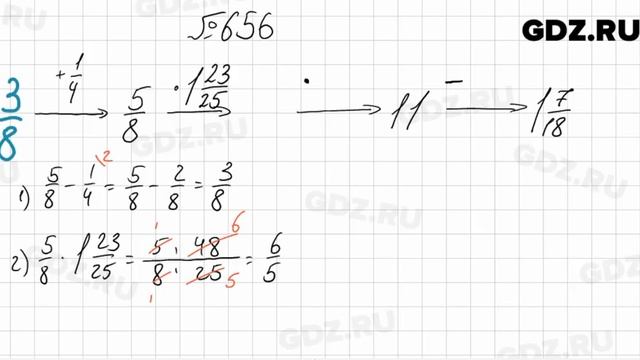 №656
GDZ.RU
3/8 +1/4 → 5/8 ·1 23/25 → · → 11 − → 1 7/18
1) 5/8 − 1/4 \2 = 5/8 − 2/8 = 3/8
2) 5/8 · 1 23/25 = 5 · 48 6 / 8 · 25 5 = 6/5
1
1
GDZ.RU
GDZ.RU
GDZ.RU
GDZ.RU
GDZ.RU
GDZ.RU